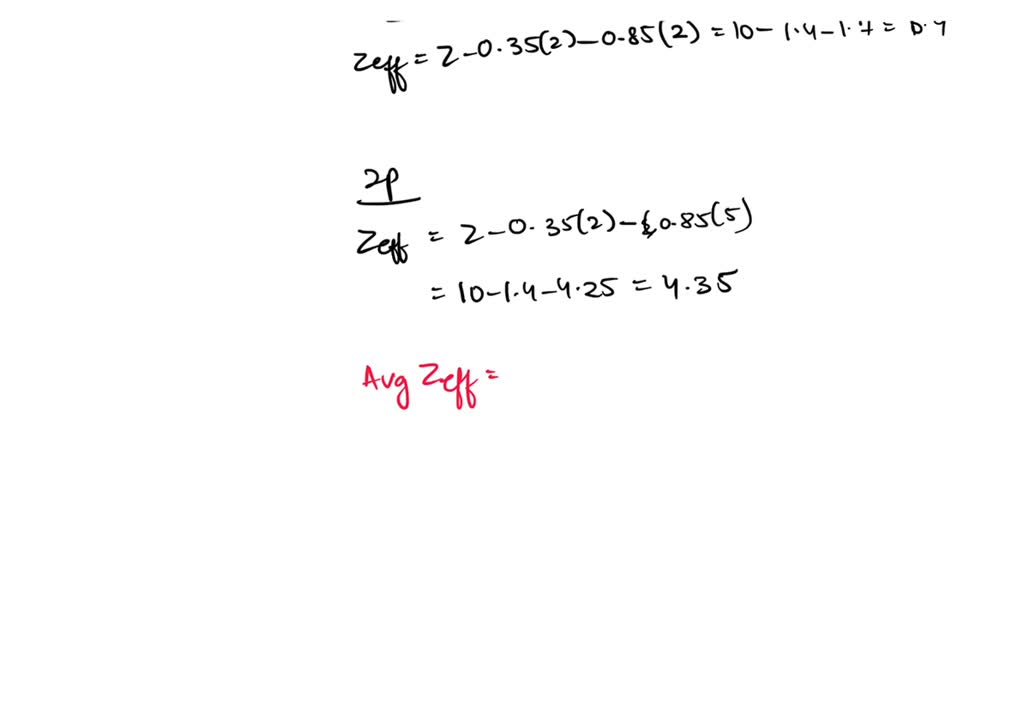 Zeff = Z - 0.35(2) - 0.85(2) = 10 - 1.4 - 1.7 = 0.7
2p
Zeff = Z - 0.35(2) - 0.85(5)
= 10 - 1.4 - 4.25 = 4.35
Avg Zeff =